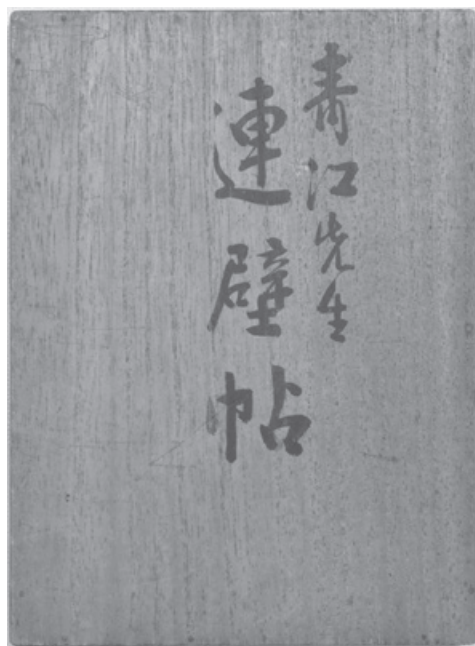 青江先生
連壁帖